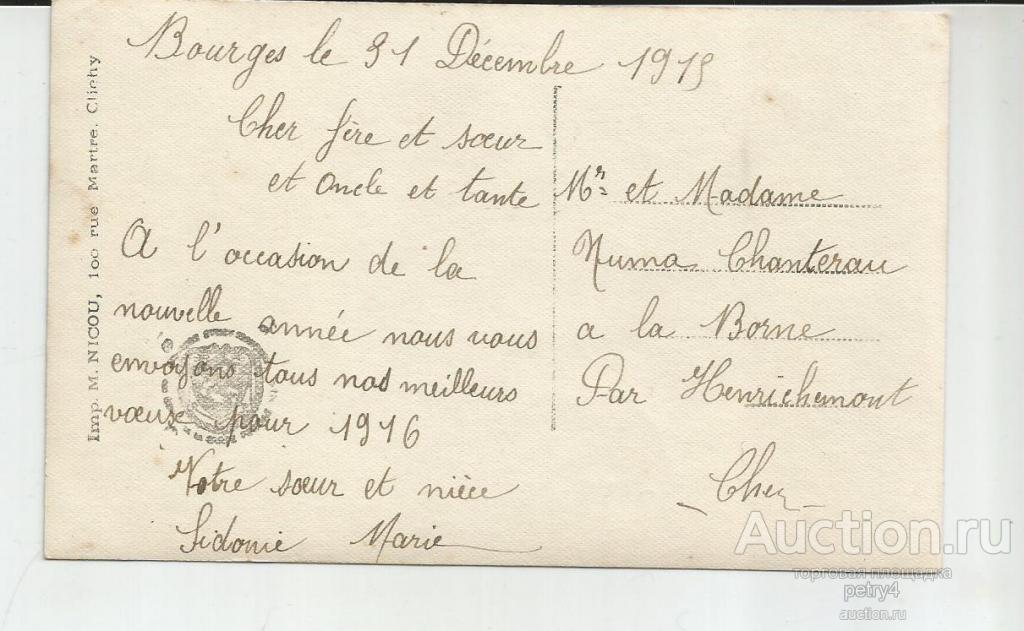 Bourges le 31 Décembre 1915
Cher fère et sœur
et oncle et tante
A l'occasion de la
nouvelle année nous vous
envoyons tous nos meilleurs
vœux pour 1916
Votre sœur et nièce
Sidonie Marie
Mr et Madame
Numa Chanterau
a la Borne
Par Henrichemont
Cher
Imp. M. NICOU, 100 rue Martre, Clichy
Auction.ru
торговая площадка
petry4
auction.ru